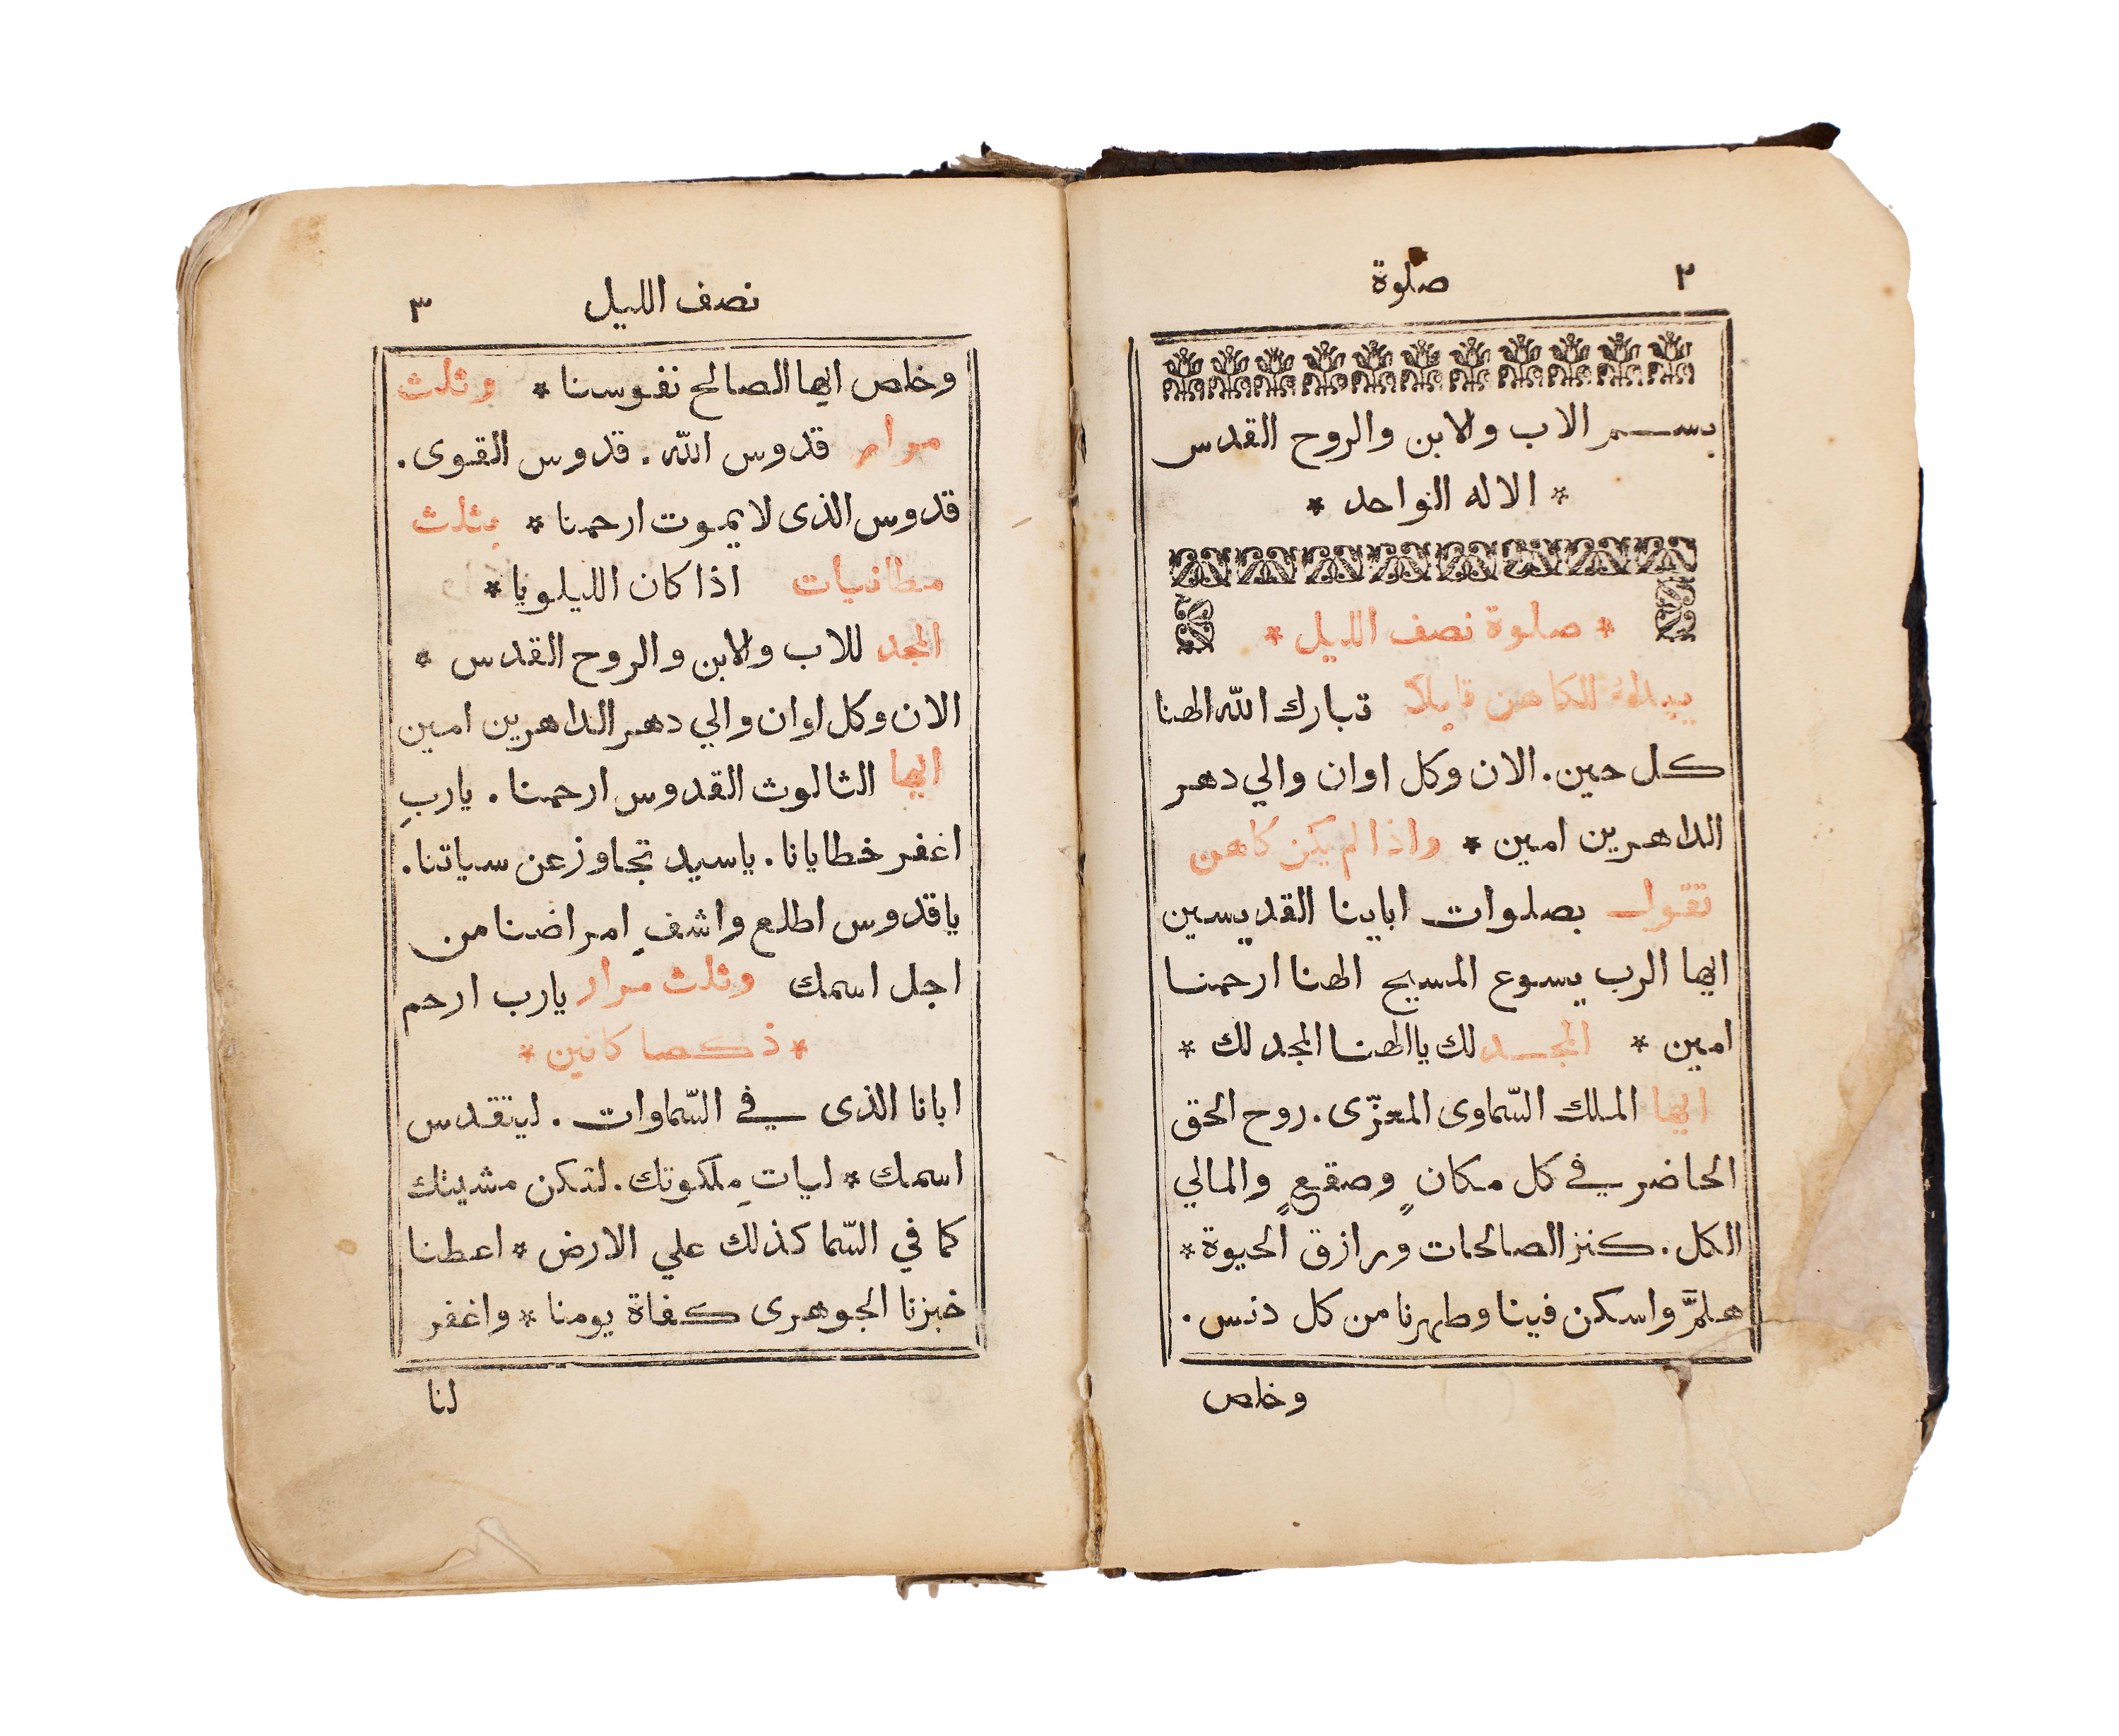 ٢ صلوة
بسم الاب والابن والروح القدس
* الاله الواحد *
* صلوة نصف الليل *
يبداء الكاهن قايلاً تبارك الله الهنا
كل حين. الان وكل اوان والي دهر
الداهرين امين * واذا لم يكن كاهن
تقول بصلوات اباينا القديسين
ايها الرب يسوع المسيح الهنا ارحمنا
امين * المجد لك يا الهنا المجد لك *
ايها الملك السّماوى المعزّى. روح الحق
الحاضر في كل مكانٍ وصقعٍ والمالي
الكل. كنز الصالحات ورازق الحيوة *
هلمَّ واسكن فينا وطهرنا من كل دنس.
وخلص
نصف الليل ٣
وخلص ايها الصالح نفوسنا * وثلث
مرار قدوس الله. قدوس القوى.
قدوس الذى لا يموت ارحمنا * بثلث
مطانيات اذا كان الليلويا *
المجد للاب والابن والروح القدس *
الان وكل اوان والي دهر الداهرين امين
ايها الثالوث القدوس ارحمنا. يا ربِ
اغفر خطايانا. يا سيد تجاوز عن سياتنا.
يا قدوس اطلع واشفِ امراضنا من
اجل اسمك وثلث مرار يا رب ارحم
* ذكصا كانين *
ابانا الذى في السّماوات. ليتقدس
اسمك * لياتِ ملكوتك. لتكن مشيتك
كما في السّما كذلك علي الارض * اعطنا
خبزنا الجوهرى كفاة يومنا * واغفر
لنا